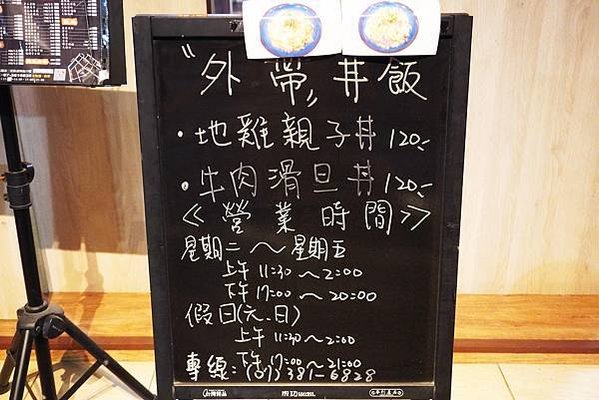 〝外帶〞丼飯
・地雞親子丼 120.-
・牛肉滑旦丼 120.-
≪營業時間≫
星期二～星期五
上午 11:30～2:00
下午 17:00～20:00
假日(六、日)
上午 11:30～2:00
下午 17:00～21:00
專線:(07)381-6828